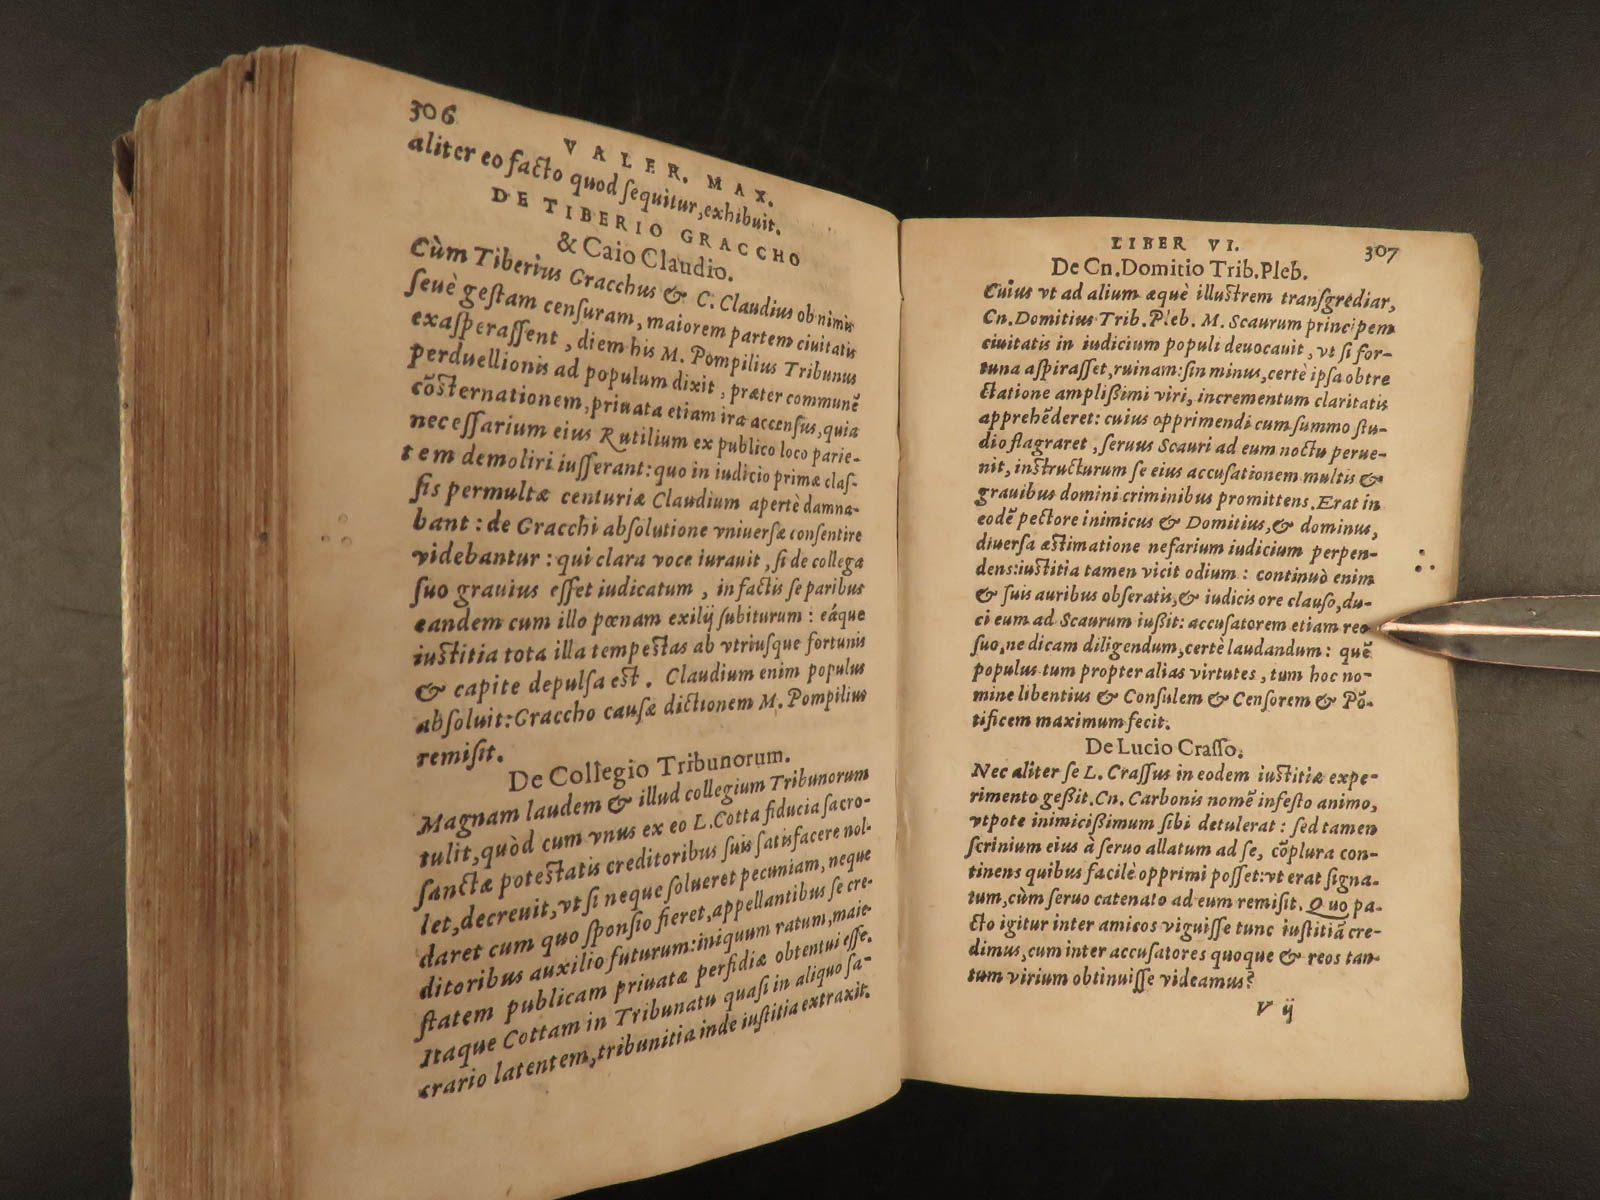 306
VALER. MAX.
aliter eo facto quod ſequitur, exhibuit.
DE TIBERIO GRACCHO
& Caio Claudio.
Cùm Tiberius Gracchus & C. Claudius ob nimis
ſeuè geſtam cenſuram, maiorem partem ciuitatis
exaſperaſſent, diem his M. Pompilius Tribunus
perduellionis ad populum dixit, præter communē
cōſternationem, priuata etiam ira accenſus, quia
neceſſarium eius Rutilium ex publico loco parie-
tem demoliri iuſſerant: quo in iudicio primæ claſ-
ſis permultæ centuriæ Claudium apertè damna-
bant: de Gracchi abſolutione vniuerſæ conſentire
videbantur: qui clara voce iurauit, ſi de collega
ſuo grauius eſſet iudicatum, in factis ſe paribus
eandem cum illo pœnam exilij ſubiturum: eáque
iuſtitia tota illa tempeſtas ab vtriuſque fortunis
& capite depulſa eſt. Claudium enim populus
abſoluit: Graccho cauſæ dictionem M. Pompilius
remiſit.
De Collegio Tribunorum.
Magnam laudem & illud collegium Tribunorum
tulit, quòd cum vnus ex eo L. Cotta fiducia ſacro-
ſanctæ poteſtatis creditoribus ſuis ſatisfacere nol-
let, decreuit, vt ſi neque ſolueret pecuniam, neque
daret cum quo ſponſio fieret, appellantibus ſe cre-
ditoribus auxilio futurum: iniquum ratum, maie-
ſtatem publicam priuatæ perfidiæ obtentui eſſe.
Itaque Cottam in Tribunatu quaſi in aliquo ſa-
crario latentem, tribunitia inde iuſtitia extraxit.
LIBER VI.
307
De Cn. Domitio Trib. Pleb.
Cuius vt ad alium æquè illuſtrem tranſgrediar,
Cn. Domitius Trib. Pleb. M. Scaurum principem
ciuitatis in iudicium populi deuocauit, vt ſi for-
tuna aſpiraſſet, ruinam: ſin minus, certè ipſa obtre
ctatione ampliſſimi viri, incrementum claritatis
apprehēderet: cuius opprimendi cum ſummo ſtu-
dio flagraret, ſeruus Scauri ad eum noctu perue-
nit, inſtructurum ſe eius accuſationem multis &
grauibus domini criminibus promittens. Erat in
eodē pectore inimicus & Domitius, & dominus,
diuerſa æſtimatione nefarium iudicium perpen-
dens: iuſtitia tamen vicit odium: continuò enim
& ſuis auribus obſeratis, & iudicis ore clauſo, du-
ci eum ad Scaurum iuſſit: accuſatorem etiam reo
ſuo, ne dicam diligendum, certè laudandum: quē
populus tum propter alias virtutes, tum hoc no-
mine libentius & Conſulem & Cenſorem & Pō-
tificem maximum fecit.
De Lucio Craſſo.
Nec aliter ſe L. Craſſus in eodem iuſtitiæ expe-
rimento geſſit. Cn. Carbonis nomē infeſto animo,
vtpote inimiciſſimum ſibi detulerat: ſed tamen
ſcrinium eius à ſeruo allatum ad ſe, cōplura con-
tinens quibus facilè opprimi poſſet: vt erat ſigna-
tum, cùm ſeruo catenato ad eum remiſit. Quo pa-
cto igitur inter amicos viguiſſe tunc iuſtitiā cre-
dimus, cum inter accuſatores quoque & reos tan-
tum virium obtinuiſſe videamus?
V ij